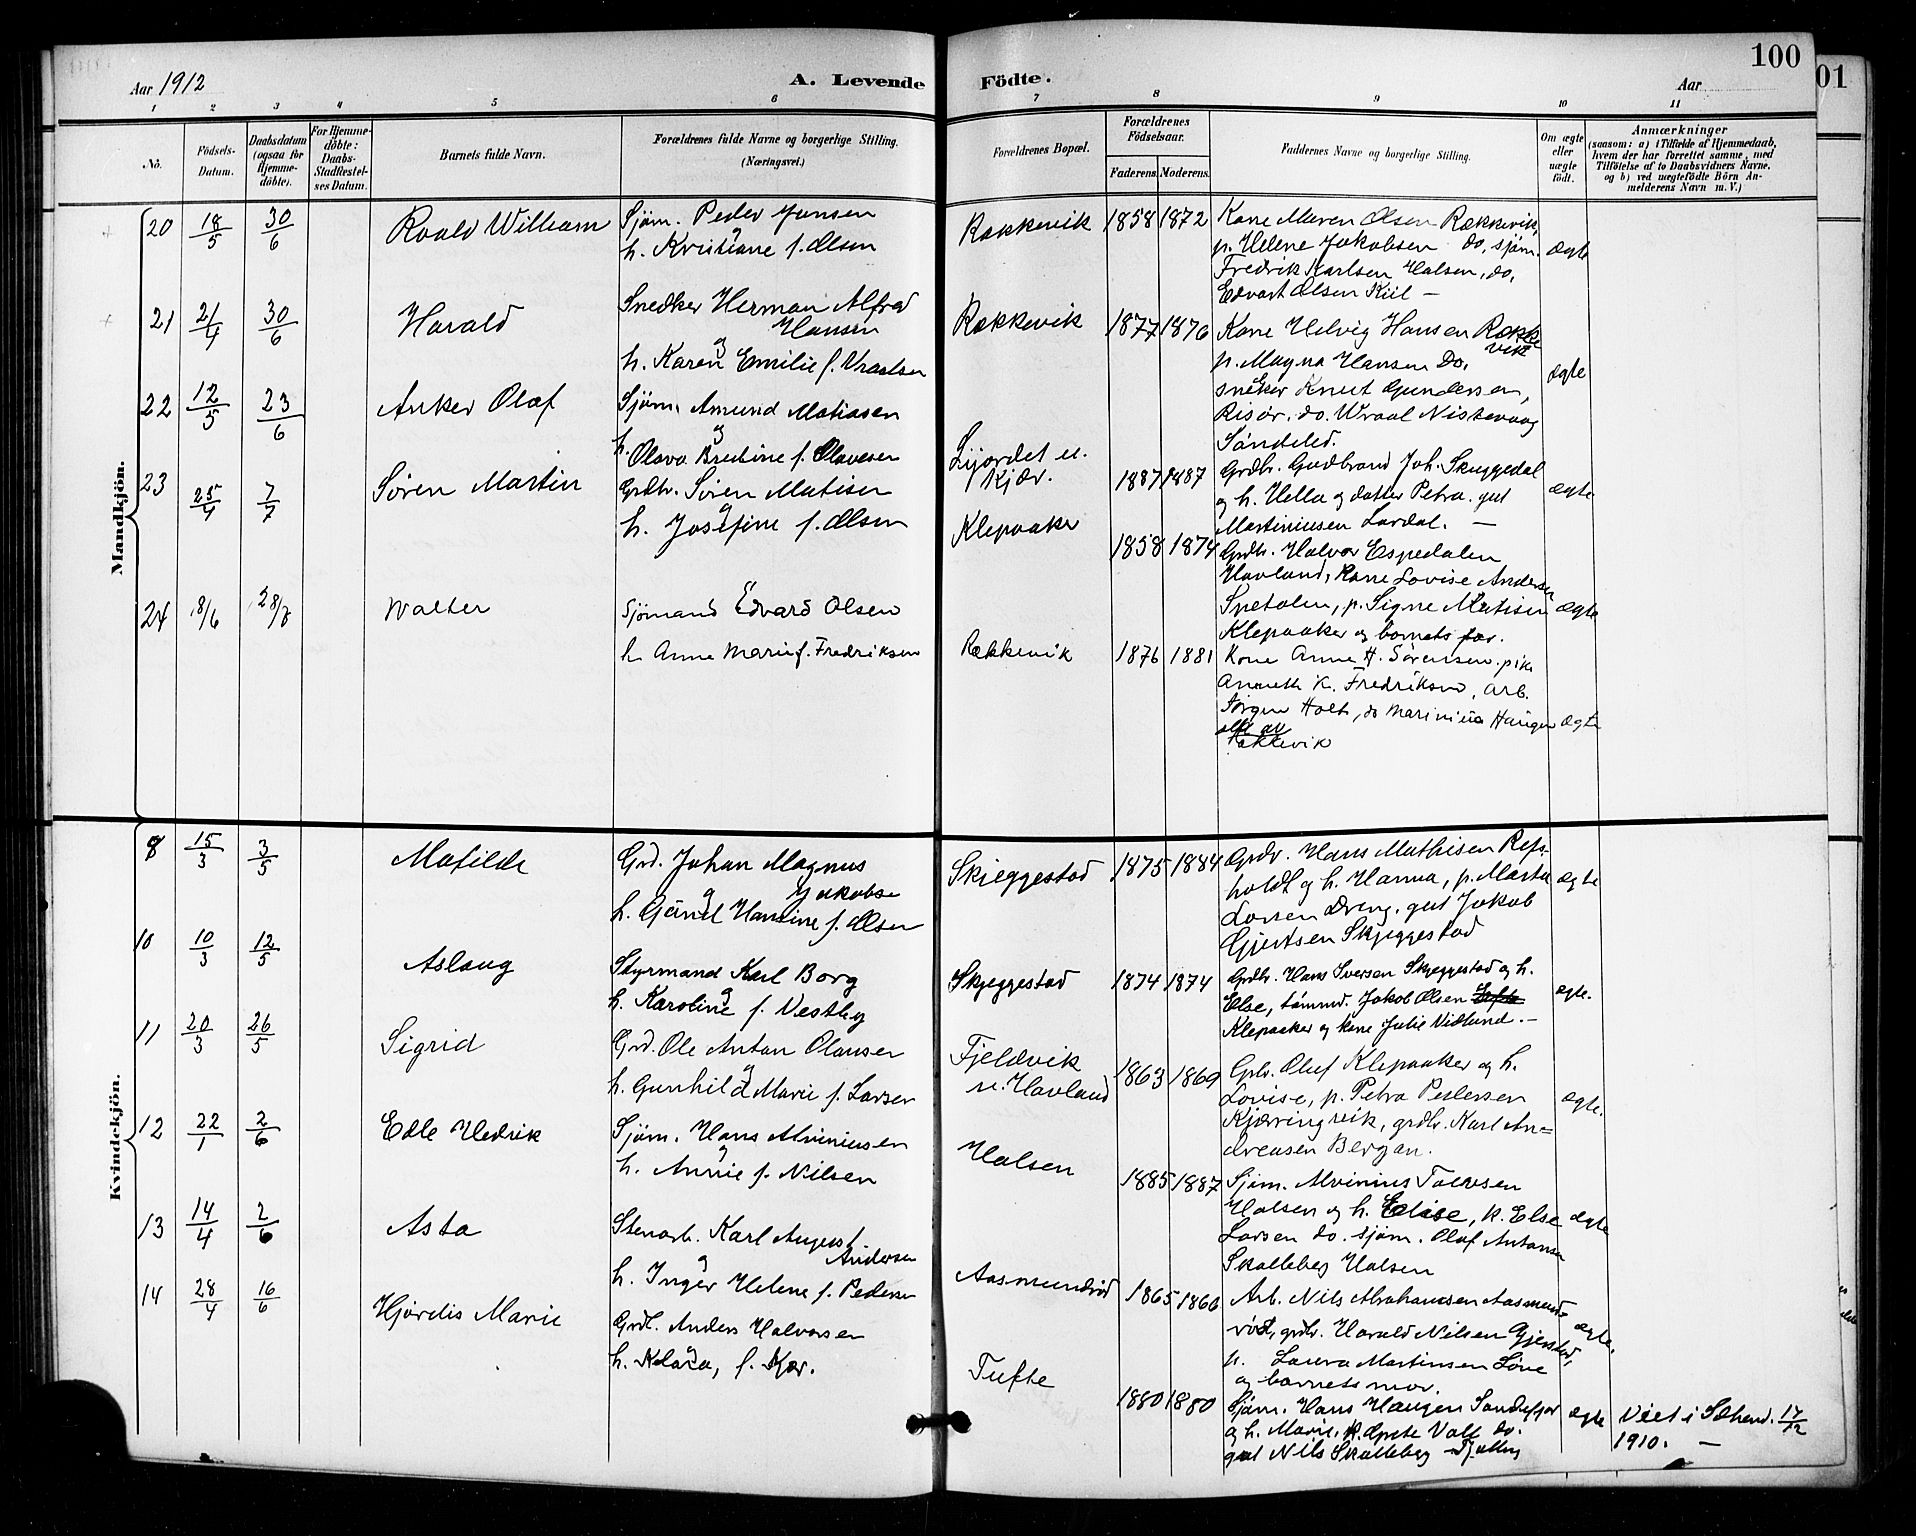 100
01
Aar 1912
A. Levende
Födte.
Aar
1 2 3 4 5 6 7 8 9 10 11
No.
Födsels-
Datum.
Daabsdatum
(ogsaa for
Hjemme-
döbte).
For Hjemme-
döbte:
Daabs-
Stadfæstel-
ses Datum.
Barnets fulde Navn.
Forældrenes fulde Navne og borgerlige Stilling.
(Næringsvei.)
Forældrenes Bopæl.
Forældrenes
Födselsaar.
Faderens. Moderens.
Faddernes Navne og borgerlige Stilling.
Om ægte
eller
uægte
født.
Anmærkninger
(saasom: a) i Tilfælde af Hjemmedaab,
hvem der har forrettet samme, med
Tilföielse af to Daabsvidners Navne,
og b) ved uægtefödte Börn An-
melderens Navn m. V.)
Mandkjön.
20 18/5 30/6 Roald William
Sjøm. Peder Jansen
og
h. Kristiane f. Olsen
Rækkevik 1858 1872
Kone Maren Olsen Rækkevik,
p. Helene Jakobsen do, sjøm.
Fredrik Karlsen Halsen, do,
Edvart Olsen Kiil —
ægte
21 21/4 30/6 Harald
Snedker Herman Alfred
Hansen
og
h. Karen Emilie f. Vraalsen
Rækkevik 1877 1876
Kone Helvig Hansen Række
vik
p. Magna Hansen Do,
sneker Knut Gundersen,
Risør, do. Wraal Nistevaag
Söndeled.
ægte
22 12/5 23/6 Anker Olaf
Sjøm. Amund Matiasen
og
h. Olava Bredine f. Olavesen
Lijordet u.
Kjær.
1887 1887
Grdbr. Gudbrand Joh. Skuggedal
og h. Hella og datter Petra. gut
Martiniusen Lardal. —
ægte
23 25/4 7/7 Søren Martin
Grdbr. Søren Matisen
og
h. Josefine f. Olsen
Klepaaker
1858 1874
Grdbr. Halvor Espedalen
Havland, Kone Lovise Andersen
Snetalen, p. Signe Matisen
Klepaaker og barnets far.
ægte
24 8/6 28/7 Walter
Sjömand Edvard Olsen
h Anne Marie f. Fredriksen
Rækkevik 1876 1881
Kone Anne H. Sörensen. pike
Anneth K. Fredriksen, arb.
Jörgen Holt, do Marinius Haugen
alle av
Rækkevik
ægte
Kvindekjön.
8 15/3 3/5 Matilde
Grd. Johan Magnus
Jakobse
og
h. Gönil Hansine f. Olsen
Skjeggestad 1875 1884
Grdbr. Hans Mathisen Refs-
holdt og h. Hanna, p. Marta
Larsen Dreng. gut Jakob
Gjertsen Skjeggestad
ægte
10 10/3 12/5 Aslaug
Styrmand Karl Borg
og
h. Karoline f. Vestby
Skjeggestad 1874 1874
Grdbr. Hans Iversen Skjeggestad og h.
Else, tømmd. Jakob Olsen
Klepaaker og kone Julie Vidlund. —
ægte.
11 20/3 26/5 Sigrid
Grd. Ole Anton Olausen
og
h. Gunhild Marie f. Larsen
Fjeldvik
u. Havland
1863 1869
Grbr. Oluf Klepaaker og h.
Lovise, p. Petra Pedersen
Kjærringvik, grdbr. Karl An=
dreasen Bergan.
ægte.
12 22/1 2/6 Edle Hedvik
Sjøm. Hans Alviniusen
og
h. Annie f. Nilsen
Halsen
1885 1887
Sjøm. Alvinius Tolvsen
Halsen og h. Elise, k. Else
Larsen do. sjøm. Olaf Antonsen
Skalleberg Halsen
ægte
13 14/4 2/6 Asta
Stenarb. Karl August
Andersen
og
h. Inger Helene f. Pedersen
Aasmundrød 1865 1866
Arb. Nils Abrahamsen Aasmund-
rød, grdbr. Harald Nilsen Gjerstad,
p. Laura Martinsen Löve
og barnets mor.
ægte.
14 28/4 16/6 Hjørdis Marie
Grdb. Anders Halvorsen
og
h. Klara, f. Kjær.
Tufte
1880 1880
Sjøm. Hans Haugen Sandefjor
og h. Marie, p. Grete Vall do.
gut Nils Skalleberg Tjølling
ægte
Viet i Sæhend. 17/12
1910. —